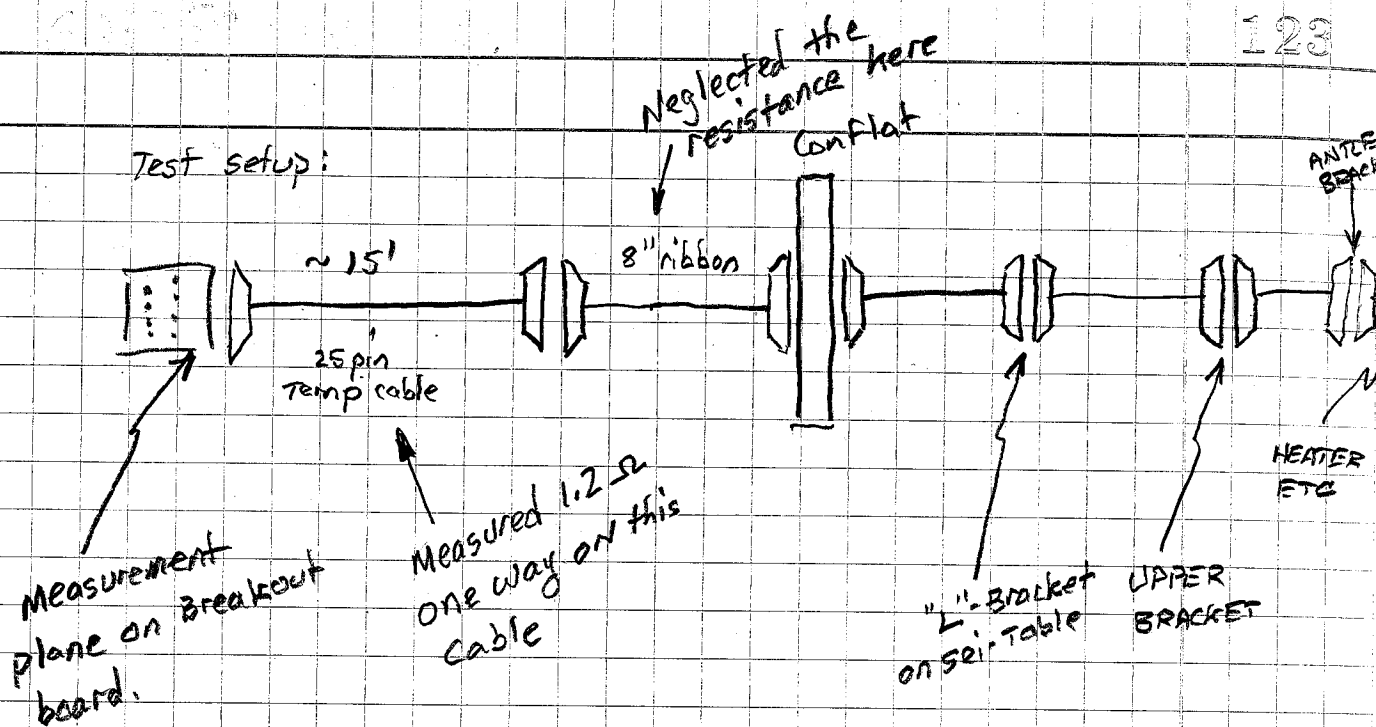 123
Neglected the
resistance here
Conflat
Test setup:
~ 15'
8" ribbon
25 pin
Temp cable
Measured 1.2 Ω
one way on this
cable
Measurement
plane on Breakout
board.
"L"-Bracket
on sei-Table
UPPER
BRACKET
HEATER
ETC